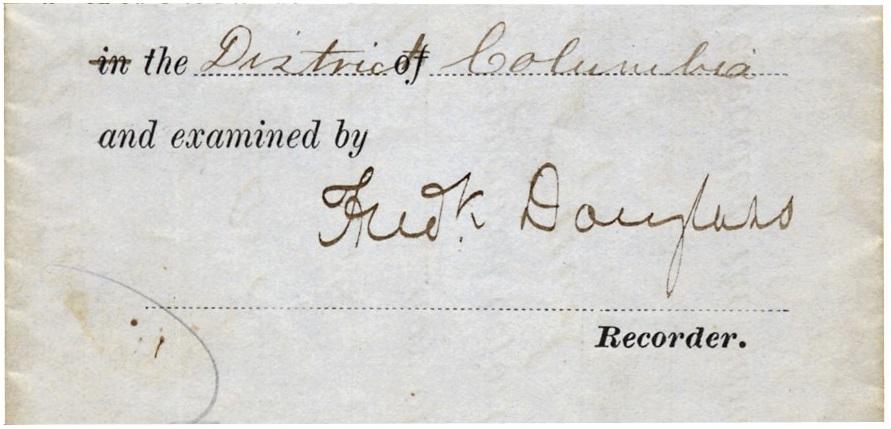 in the District of Columbia
and examined by
Fredk Douglass
Recorder.